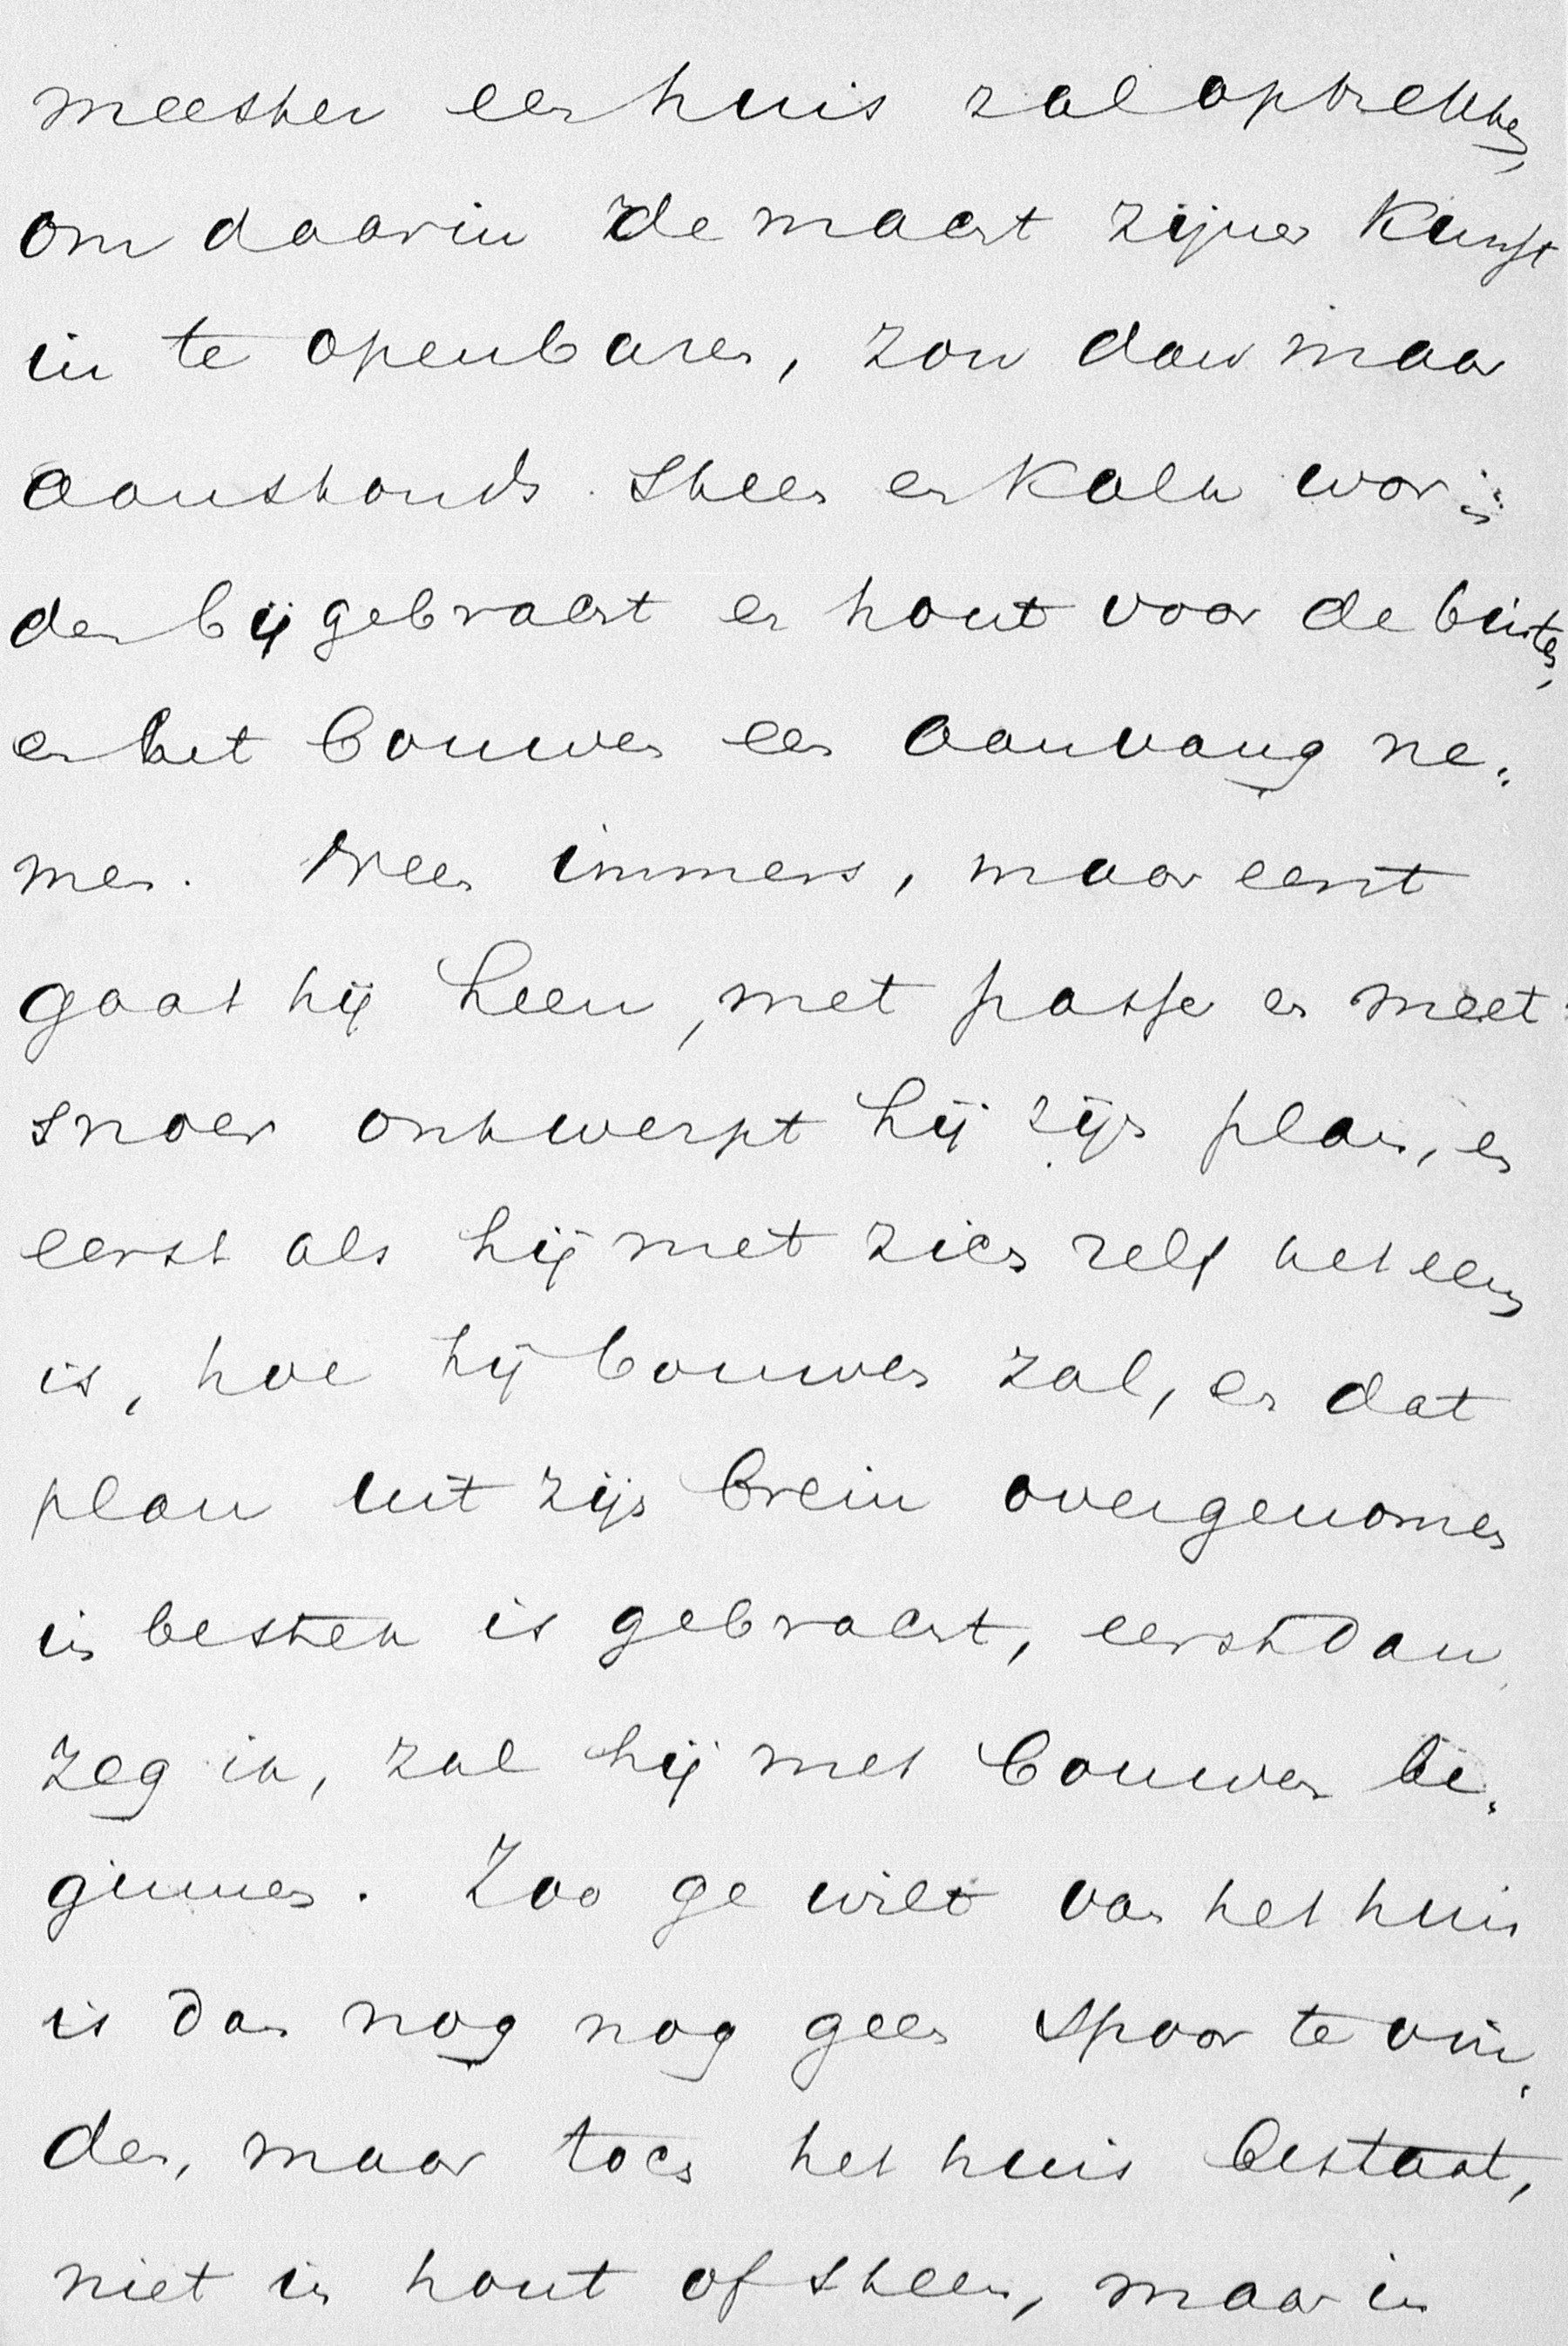 meester een huis zal optrekken,
om daarin de macht zijner kunst
in te openbaren, zou dan maar
aanstonds steen en kalk wor=
den bijgebracht en hout voor de binten,
en het bouwen een aanvang ne=
men. Neen immers, maar eerst
gaat hij heen, met passer en meet=
snoer ontwerpt hij zijn plan, en
eerst als hij met zich zelf het eens
is, hoe hij bouwen zal, en dat
plan uit zijn brein overgenomen
in bestek is gebracht, eerst dan,
zeg ik, zal hij met bouwen be=
ginnen. Zoo ge wilt van het huis
is dan nog nog geen spoor te vin=
den, maar toch het huis bestaat,
niet in hout of steen, maar in